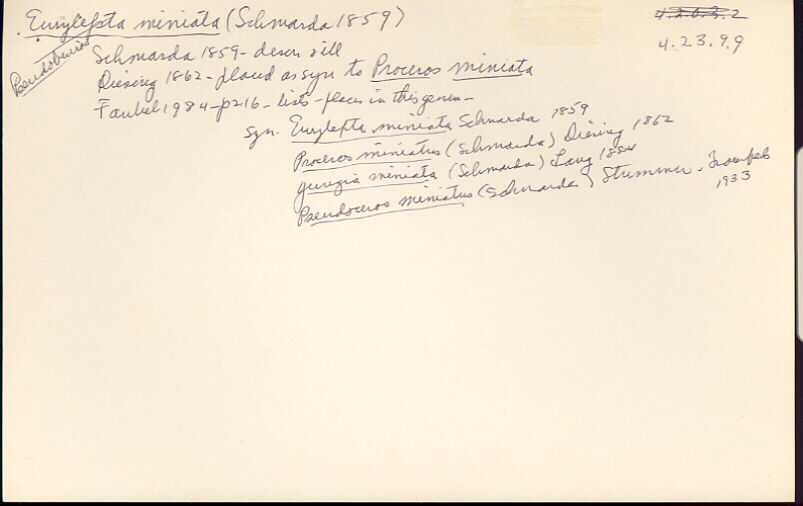 Eurylepta miniata (Schmarda 1859)
4.20.3.2
4.23.9.9
Pseudobiceros
Schmarda 1859 - descr ill
Diesing 1862 - placed as syn to Proceros miniata
Faubel 1984 - p216 - lists - places in this genus -
syn. Eurylepta miniata Schmarda 1859
Proceros miniatus (Schmarda) Diesing 1862
Yungia miniata (Schmarda) Lang 1884
Pseudoceros miniatus (Schmarda) Stummer-Traunfels
1933